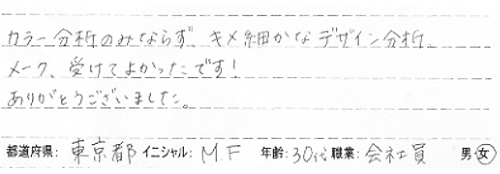 カラー分析のみならず、キメ細かなデザイン分析、
メーク、受けてよかったです！
ありがとうございました。
都道府県: 東京都 イニシャル: M.F 年齢: 30代 職業: 会社員 男・女